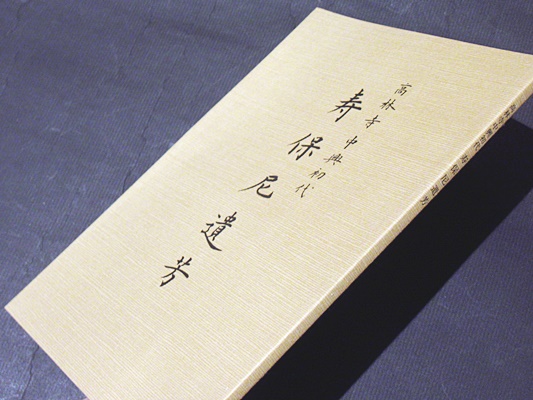 高林寺 中興初代
寿保尼遺芳
高林寺中興初代 寿保尼遺芳